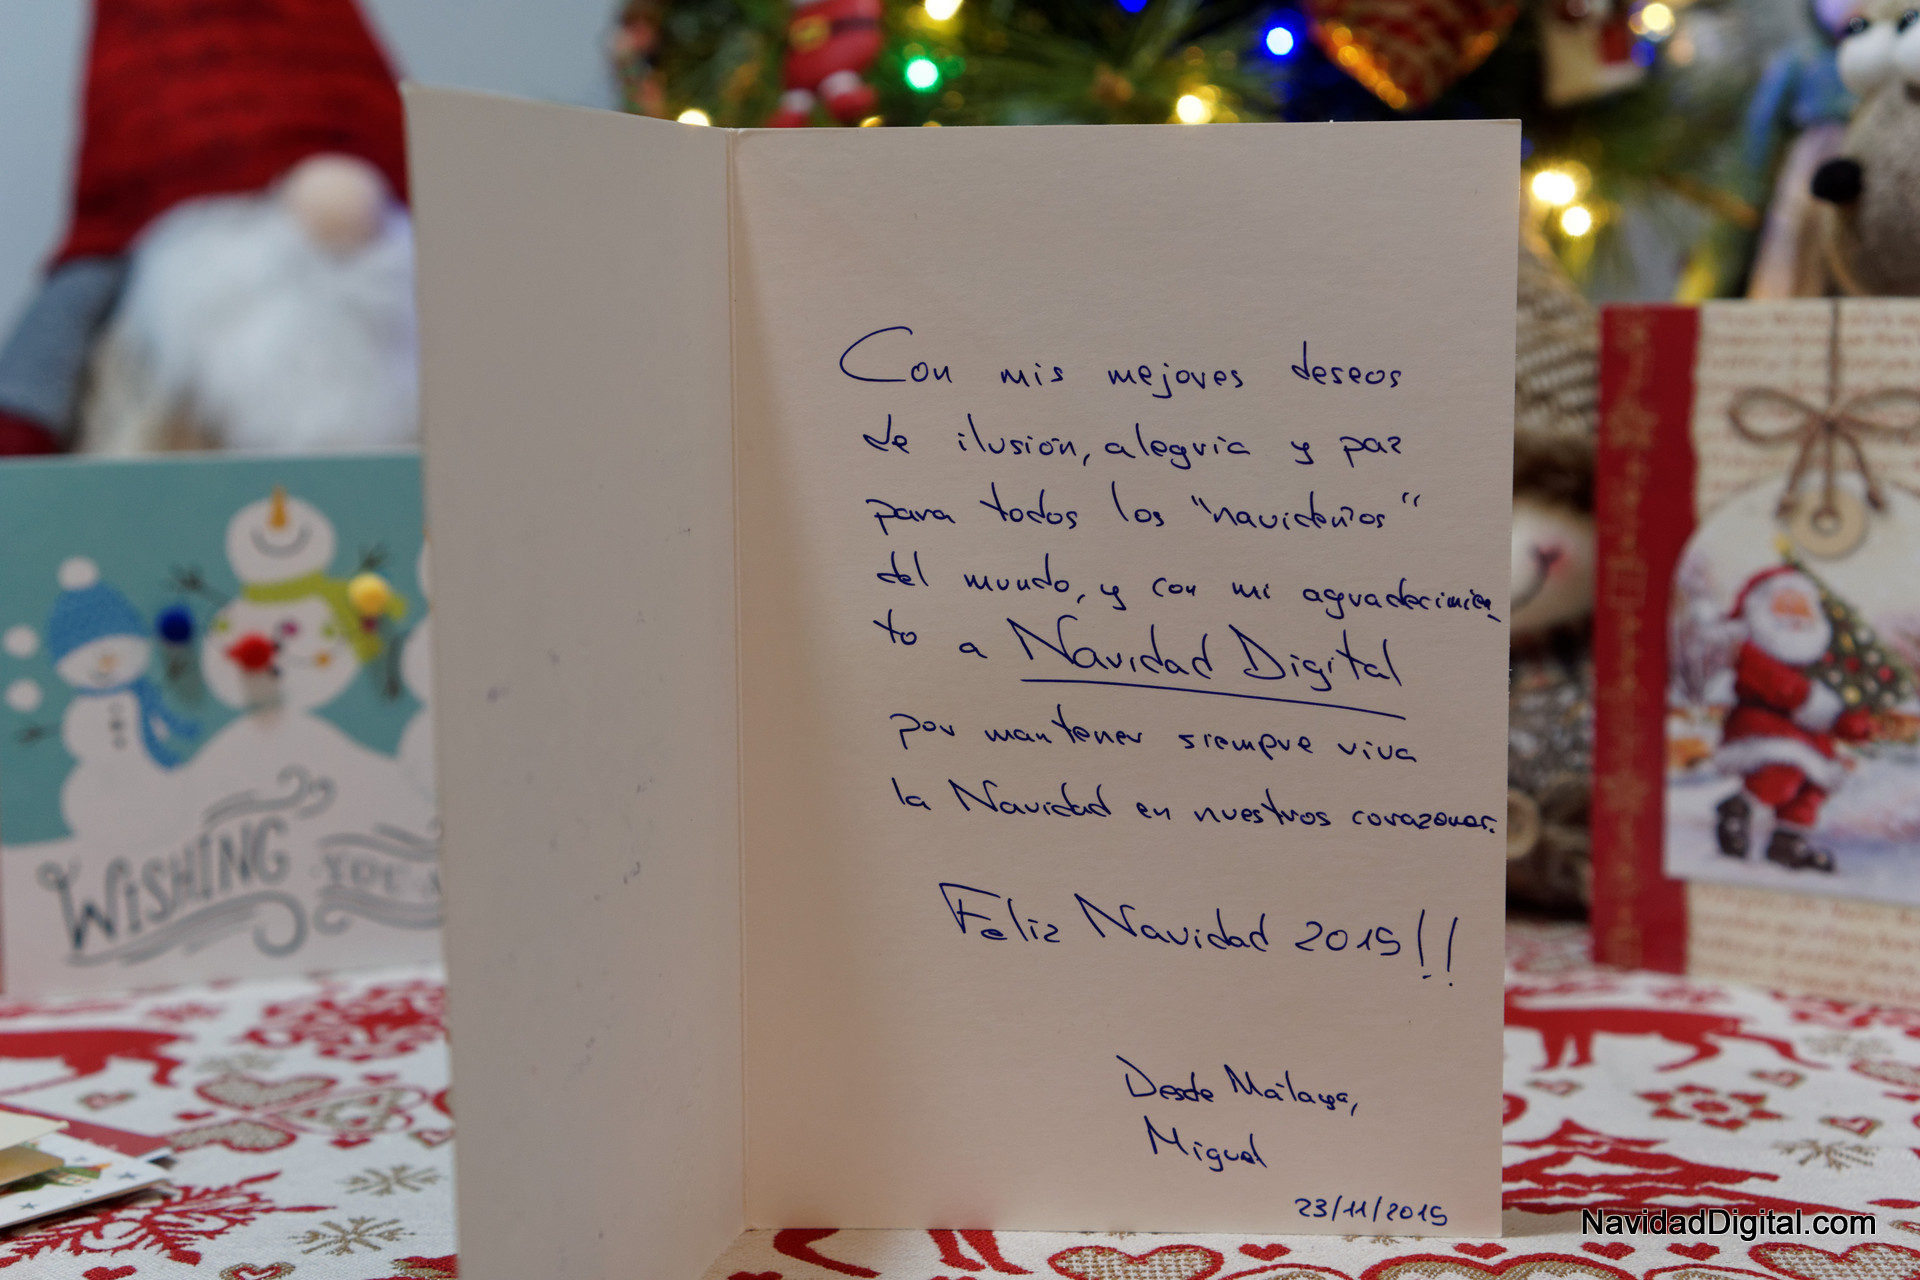 Con mis mejores deseos
de ilusión, alegria y paz
para todos los "navideños"
del mundo, y con mi agradecimien
to a Navidad Digital
por mantener siempre viva
la Navidad en nuestros corazones.
Feliz Navidad 2019!!
Desde Málaga,
Miguel
23/11/2019
WISHING
YOU A
NavidadDigital.com